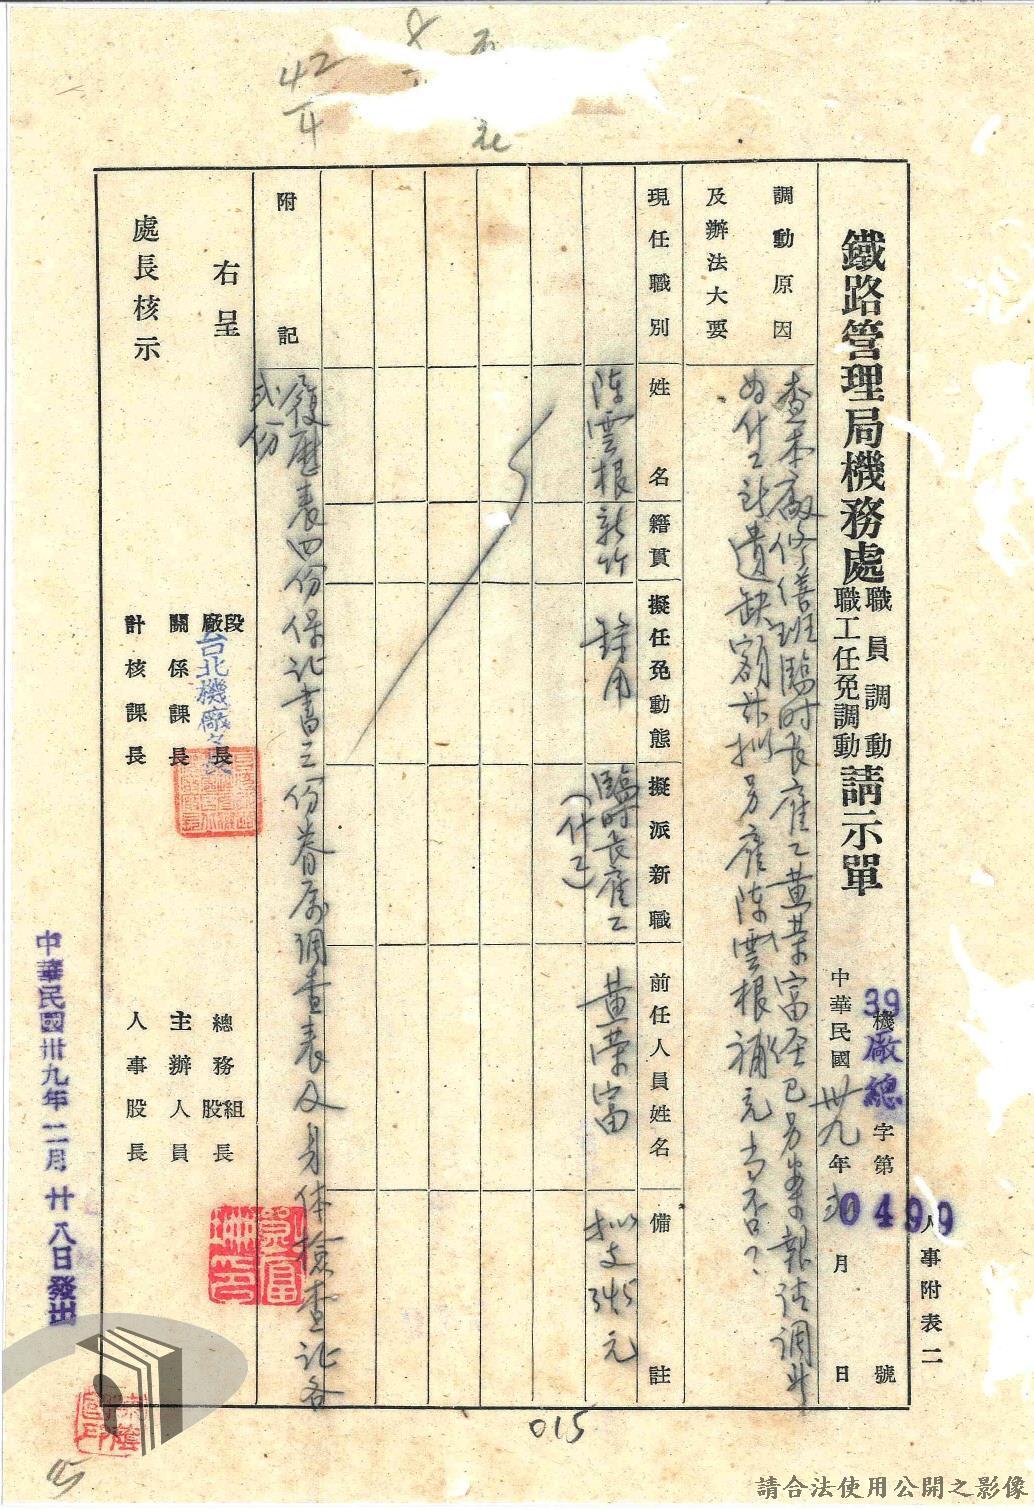 人事附表二
鐵路管理局機務處職員調動職工任免調動請示單
39機廠總字第0499號
中華民國卅九年貳月　日
調動原因及辦法大要
查本廠修繕班臨时長雇工黃荣富经已另案報请調升
為什工所遺缺額茲拟另雇陳雲根補充当否？
現任職別
姓名
籍貫
擬任免動態
擬派新職
前任人員姓名
備註
陈雲根
新竹
錄用
臨時長雇工
（什工）
黄荣富
拟支345元
附記
履歷表四份保证書三份眷属調查表及身体檢查证各
貳份
右呈
處長核示
段廠長
台北機廠々長
關係課長
計核課長
總務組股長
主辦人員
人事股長
中華民國卅九年二月廿八日發出
42
4
015
15
請合法使用公開之影像